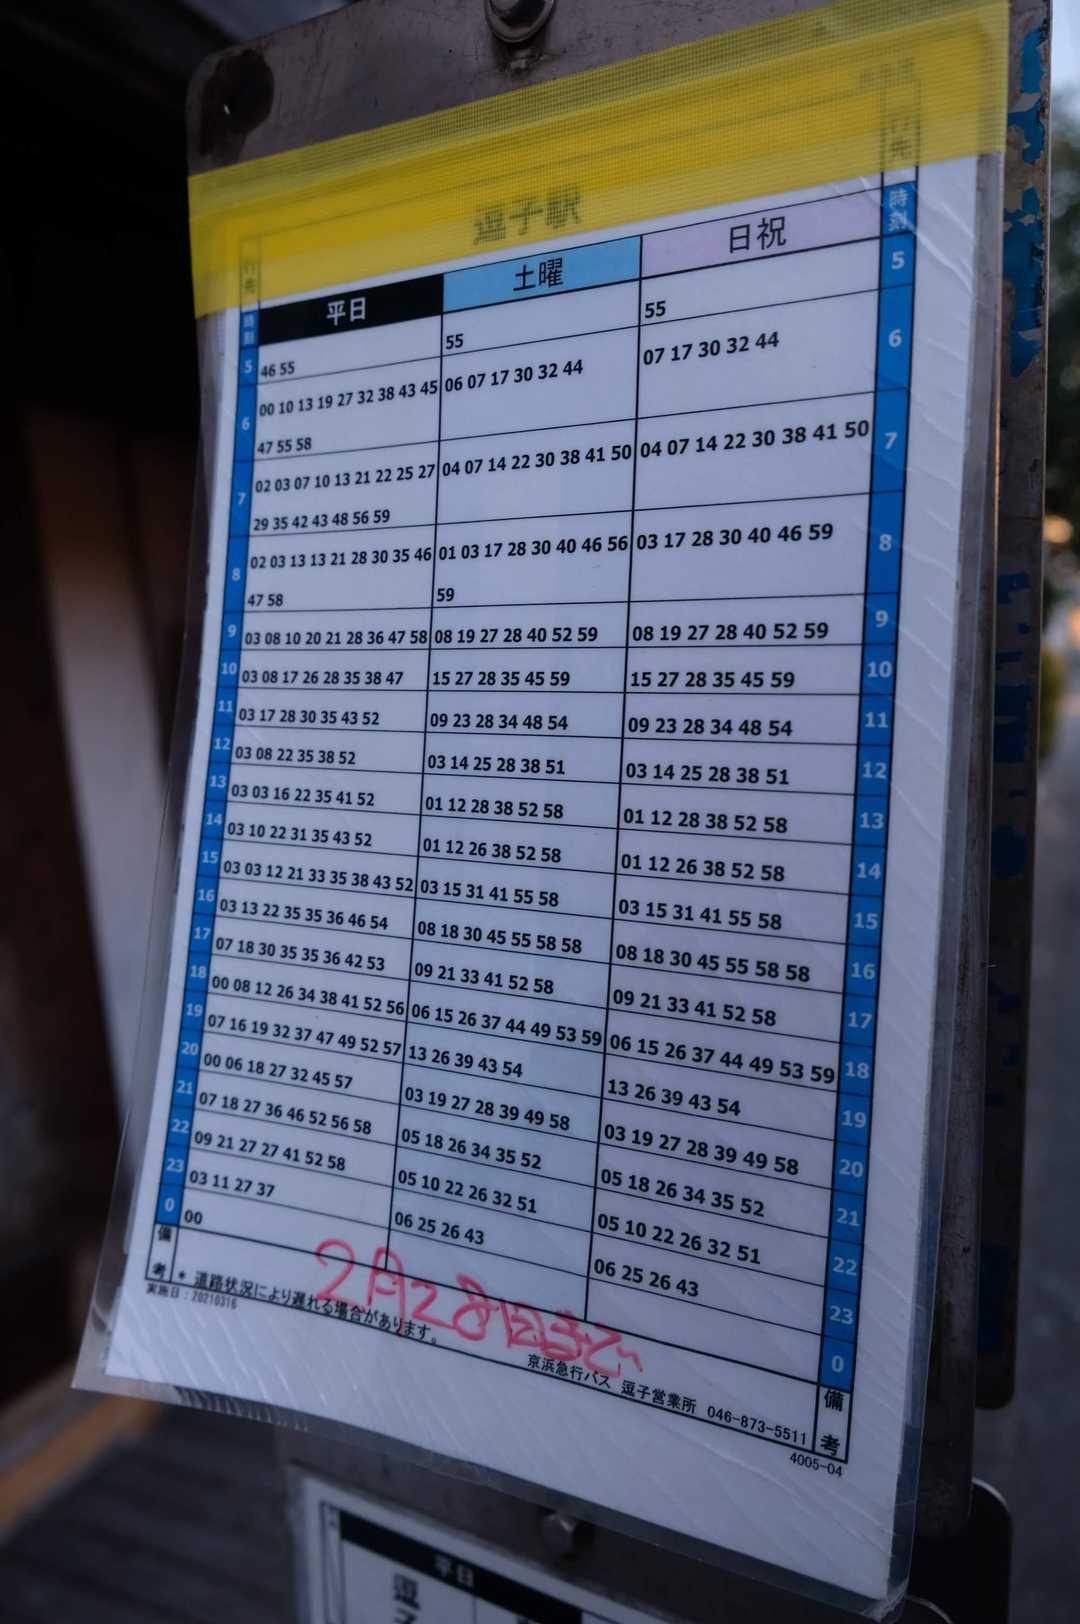 行先
逗子駅
行先
時刻 平日 土曜 日祝 時刻
5 46 55 55 55 5
6 00 10 13 19 27 32 38 43 45 06 07 17 30 32 44 07 17 30 32 44 6
47 55 58
7 02 03 07 10 13 21 22 25 27 04 07 14 22 30 38 41 50 04 07 14 22 30 38 41 50 7
29 35 42 43 48 56 59
8 02 03 13 13 21 28 30 35 46 01 03 17 28 30 40 46 56 03 17 28 30 40 46 59 8
47 58 59
9 03 08 10 20 21 28 36 47 58 08 19 27 28 40 52 59 08 19 27 28 40 52 59 9
10 03 08 17 26 28 35 38 47 15 27 28 35 45 59 15 27 28 35 45 59 10
11 03 17 28 30 35 43 52 09 23 28 34 48 54 09 23 28 34 48 54 11
12 03 08 22 35 38 52 03 14 25 28 38 51 03 14 25 28 38 51 12
13 03 03 16 22 35 41 52 01 12 28 38 52 58 01 12 28 38 52 58 13
14 03 10 22 31 35 43 52 01 12 26 38 52 58 01 12 26 38 52 58 14
15 03 03 12 21 33 35 38 43 52 03 15 31 41 55 58 03 15 31 41 55 58 15
16 03 13 22 35 35 36 46 54 08 18 30 45 55 58 58 08 18 30 45 55 58 58 16
17 07 18 30 35 35 36 42 53 09 21 33 41 52 58 09 21 33 41 52 58 17
18 00 08 12 26 34 38 41 52 56 06 15 26 37 44 49 53 59 06 15 26 37 44 49 53 59 18
19 07 16 19 32 37 47 49 52 57 13 26 39 43 54 13 26 39 43 54 19
20 00 06 18 27 32 45 57 03 19 27 28 39 49 58 03 19 27 28 39 49 58 20
21 07 18 27 36 46 52 56 58 05 18 26 34 35 52 05 18 26 34 35 52 21
22 09 21 27 27 41 52 58 05 10 22 26 32 51 05 10 22 26 32 51 22
23 03 11 27 37 06 25 26 43 06 25 26 43 23
0 00 0
備考 * 道路状況により遅れる場合があります。 備考
2月28日まで
実施日:20210316
京浜急行バス 逗子営業所 046-873-5511
4005-04
平日
逗子